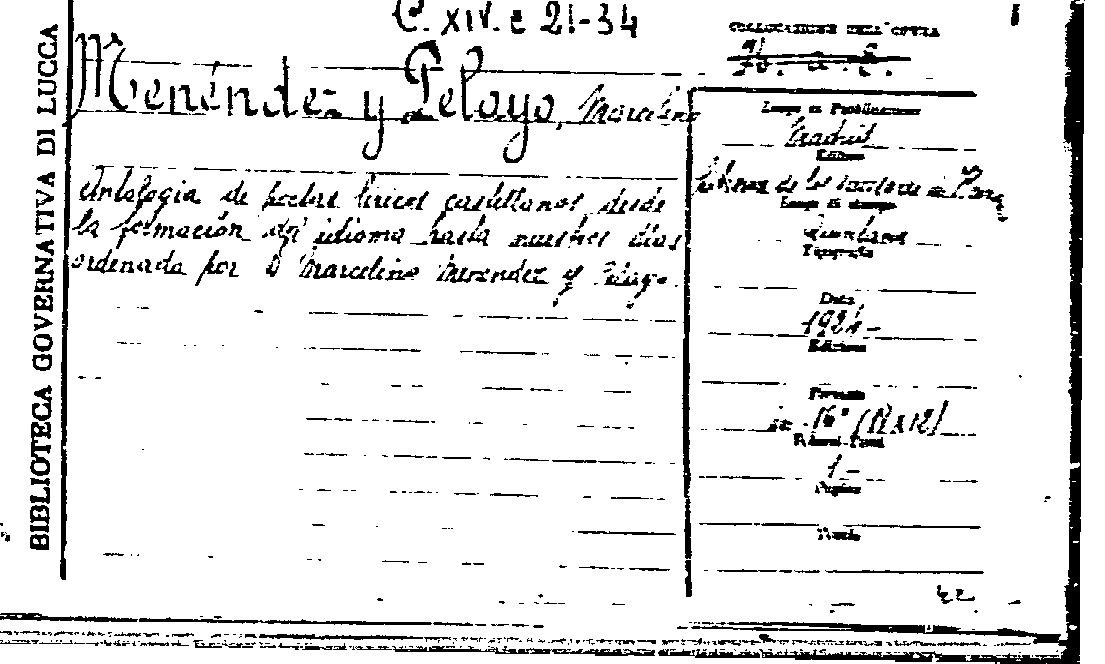 C. XIV. c 21-34
COLLOCAZIONE DELL'OPERA
BIBLIOTECA GOVERNATIVA DI LUCCA
Menéndez y Pelayo, Marcelino
Antologia de poetas liricos castellanos desde
la formación del idioma hasta nuestros días
ordenada por D Marcelino Menendez y Pelayo.
Luogo di Pubblicazione
Madrid
Editore
de los
Luogo di stampa
Tipografo
Data
1924-
Edizione
Formato
in - 16° (12x12)
Volumi-Tomi
1 -
Pagine
Tavole